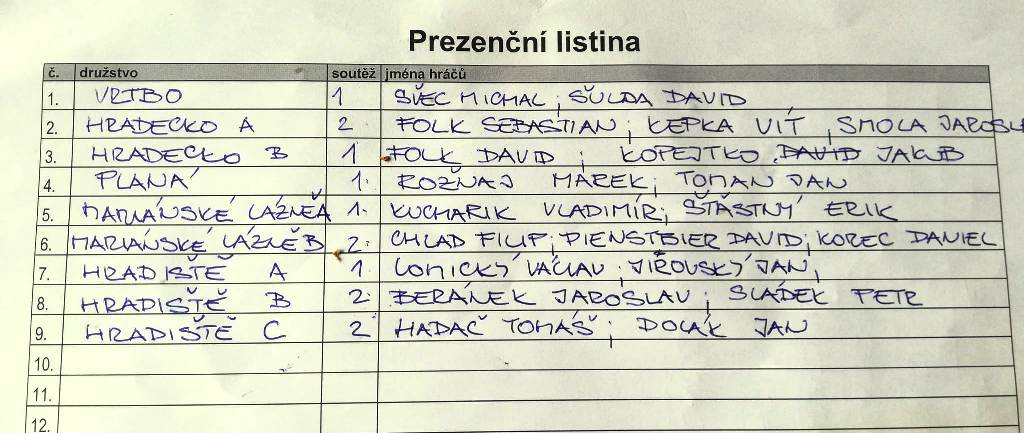 Prezenční listina
č. družstvo soutěž jména hráčů
1. VRTBO 1 ŠVEC MICHAL; ŠULDA DAVID
2. HRADECKO A 2. FOLK SEBASTIAN; KEPKA VÍT, SMOLA JAROSLA
3. HRADECKO B 1 FOLK DAVID; KOPEJTKO DAVID JAKUB
4. PLANÁ 1. ROŽŇAJ MAREK; TOMAN JAN
5. MARIÁNSKÉ LÁZNĚ A 1. KUCHARIK VLADIMÍR; ŠŤÁSTNÝ ERIK
6. MARIÁNSKÉ LÁZNĚ B 2. CHLAD FILIP; PIENSTBIER DAVID; KOREC DANIEL
7. HRADIŠTĚ A 1. LOMICKÝ VÁCLAV; JÍŘOVSKÝ JAN,
8. HRADIŠTĚ B 2. BERÁNEK JAROSLAV; SLÁDEK PETR
9. HRADIŠTĚ C 2 HADAČ TOMÁŠ; DOLÁK JAN
10.
11.
12.